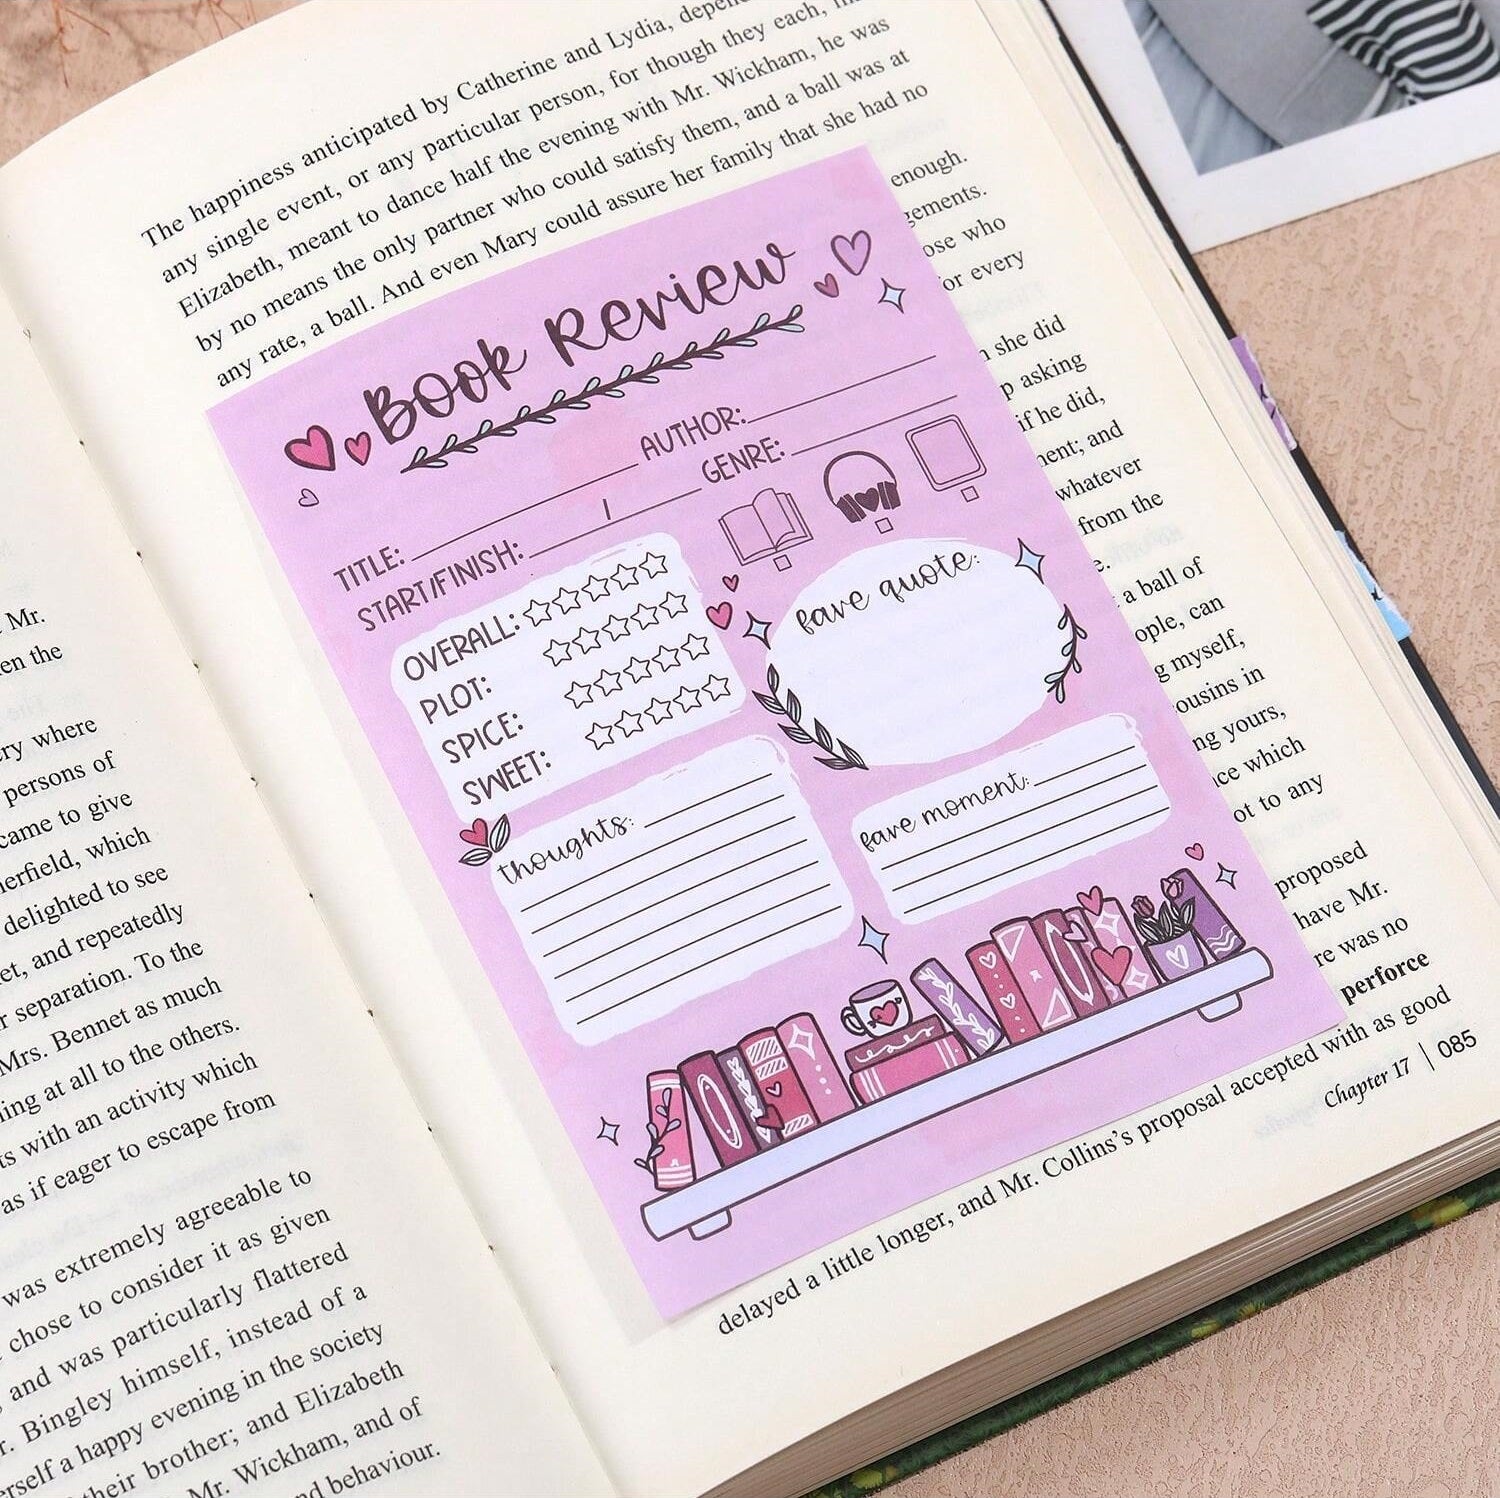 Mr.
en the
ry where
persons of
came to give
erfield, which
delighted to see
et, and repeatedly
r separation. To the
Mrs. Bennet as much
ing at all to the others.
ts with an activity which
as if eager to escape from
was extremely agreeable to
chose to consider it as given
and was particularly flattered
r. Bingley himself, instead of a
erself a happy evening in the society
their brother; and Elizabeth
Mr. Wickham, and of
nd behaviour.
The happiness anticipated by Catherine and Lydia, depen
any single event, or any particular person, for though they each,
Elizabeth, meant to dance half the evening with Mr. Wickham, he was
by no means the only partner who could satisfy them, and a ball was at
any rate, a ball. And even Mary could assure her family that she had no
enough.
gements.
ose who
or every
she did
p asking
if he did,
ent; and
whatever
from the
e.
a ball of
ople, can
g myself,
ousins in
ng yours,
ce which
ot to any
proposed
have Mr.
re was no
perforce
delayed a little longer, and Mr. Collins's proposal accepted with as good
Chapter 17 | 085
BOOK REVIEW
TITLE:
AUTHOR:
START/FINISH: /
GENRE:
OVERALL:
PLOT:
SPICE:
SWEET:
fave quote:
thoughts:
fave moment: